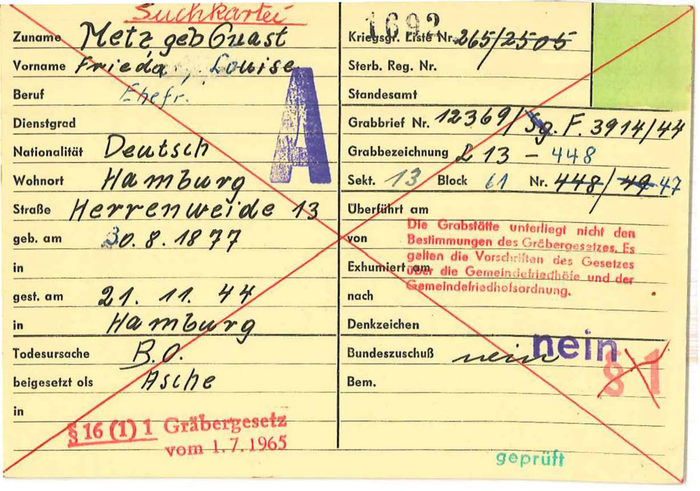 Suchkartei
Zuname Metz geb Guast
Vorname Frieda, Louise
Beruf Ehefr.
Dienstgrad
Nationalität Deutsch
Wohnort Hamburg
Straße Herrenweide 13
geb. am 30.8.1877
in
gest. am 21.11.44
in Hamburg
Todesursache B.O.
beigesetzt als Asche
in
§ 16 (1) 1 Gräbergesetz
vom 1.7.1965
A
1692
Kriegsgr. Liste Nr. 265/2505
Sterb. Reg. Nr.
Standesamt
Grabbrief Nr. 12369/Sg. F. 3914/44
Grabbezeichnung L 13 - 448
Sekt. 13 Block 61 Nr. 448/49 47
Überführt am
von
Die Grabstätte unterliegt nicht den
Bestimmungen des Gräbergesetzes. Es
gelten die Vorschriften des Gesetzes
über die Gemeindefriedhöfe und der
Gemeindefriedhofsordnung.
Exhumiert am
nach
Denkzeichen
Bundeszuschuß nein nein
§ 1
Bem.
geprüft